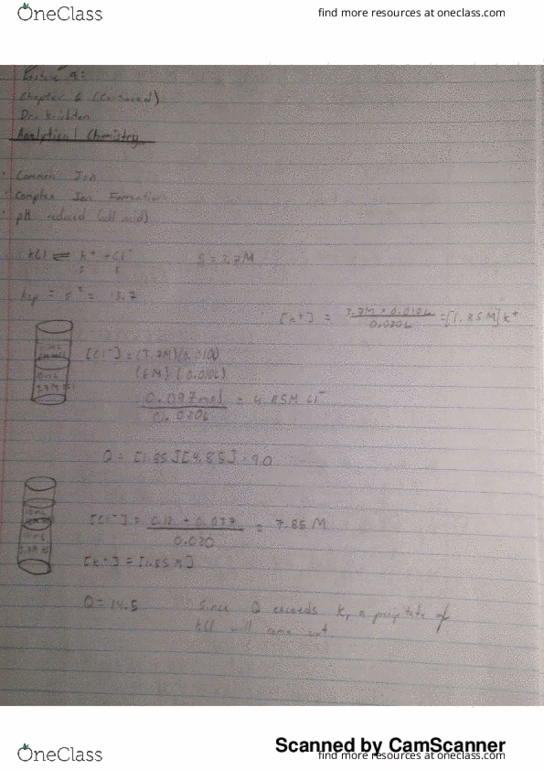 OneClass
find more resources at oneclass.com
Lecture 9:
Chapter 6 (Continued)
Dr.
Analytical Chemistry
· Common Ion
· Complex Ion Formation
· pH reduced (add acid)
KCl ⇌ K⁺ + Cl⁻ S = 3.7M
S S
Ksp = S² = 13.7
[K⁺] = 3.7M × 0.010L / 0.020L = [1.85M] K⁺
[Cl⁻] = (3.7M)(0.010L)
(6M)(0.010L)
0.097mol / 0.020L = 4.85M Cl⁻
Q = [1.85][4.85] = 9.0
[Cl⁻] = 0.12 + 0.037 / 0.020 = 7.85 M
[K⁺] = [1.85 M]
Q = 14.5 Since Q exceeds K, a preciptate of
KCl will come out
Scanned by CamScanner
OneClass
find more resources at oneclass.com